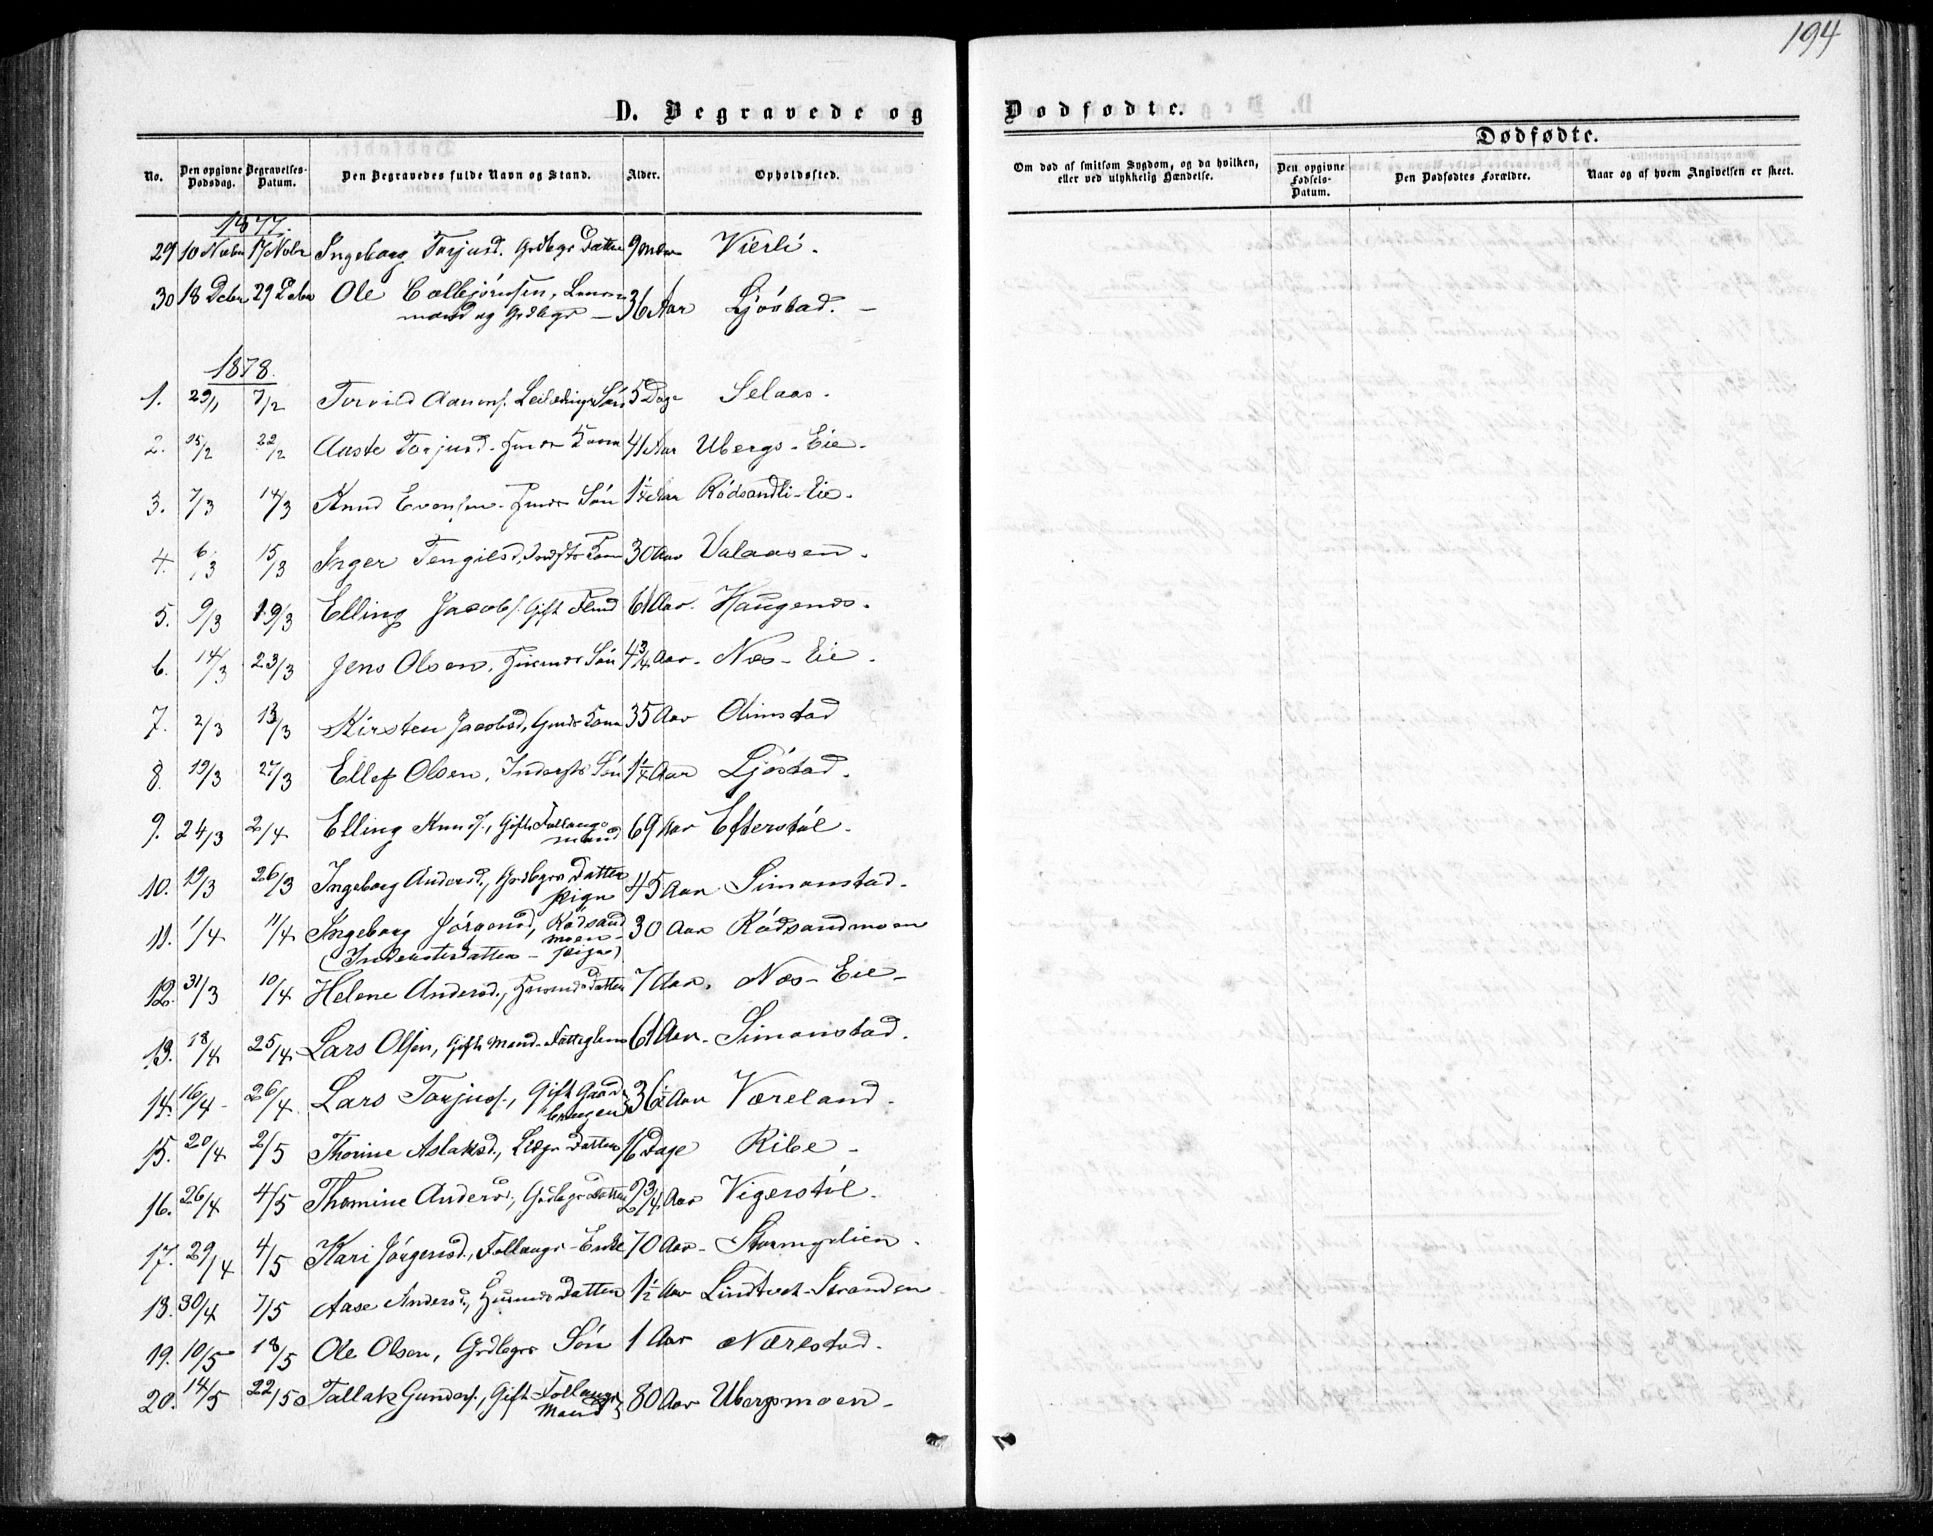 194
D. Begravede og Dødfødte.
Dødfødte.
No. Den opgivne Dødsdag. Begravelses-Datum. Den Begravedes fulde Navn og Stand. Alder. Opholdssted.
Om død af smitsom Sygdom, og da hvilken, eller ved ulykkelig Hændelse. Den opgivne Fødsels-Datum. Den Dødfødtes Forældre. Naar og af hvem Angivelsen er skeet.
1877.
29 10 Novbr 17 Novbr Ingeborg Torjusd. Grdbgr Datter 9 Vierli.
30 18 Decbr 29 Decbr Ole
mand og Grdbgr — 36 Aar Ljøstad. —
1878.
1. 29/1 7/2 Torvild Aanons. Søn 5 Dage Selaas.
2. 15/2 22/2 Aaste Torjusd. Kone 41 Aar Ubergs-Eie.
3. 7/3 14/3 Knud Evensen. Søn 1¼ Aar Rödsandli-Eie.
4. 6/3 15/3 Inger Tengilsd. Kone 30 Aar Valaasen.
5. 9/3 19/3 Elling Jacobs. Gift 61 Aar. Haugenes.
6. 14/3 23/3 Jens Olsen, Søn 4¾ Aar. Næs-Eie.
7. 2/3 13/3 Kirsten Jacobsd, Kone 35 Aar Olimstad
8. 19/3 27/3 Ellef Olsen, Inderstes Søn 1¼ Aar Ljøstad.
9. 24/3 2/4 Elling Knuds., Gift Follaugs-
mand 69 Aar Efterstøl.
10. 19/3 26/3 Ingeborg Andersd., Grdbgrs Datter
Pige 45 Aar Simonstad.
11. 1/4 11/4 Ingeborg Jörgensd, Rødsand
moen 30 Aar Rødsandmoen
(Inderstesdatter - Pige)
12. 31/3 10/4 Helene Andersd., Husmds Datter 7 Aar. Næs-Eie-
13. 18/4 25/4 Lars Olsen, Gift Mand. Fattiglem 61 Aar. Simonstad.
14. 16/4 26/4. Lars Torjus., Gift Gaard
bruger 36½ Aar Væreland.
15. 20/4 2/5 Thorine Aslaksd., Datter 16 Dage Ribe -
16. 26/4 4/5 Thomine Andersd., Grdbgrs Datter 2¾ Aar Vigerstøl.
17. 29/4 4/5 Kari Jörgensd., Follaugs-Enke 70 Aar -
18. 30/4 7/5 Aase Andersd., Husmds Datter 1½ Aar Lindtveit-Stranden.
19. 10/5 18/5 Ole Olsen, Grdbgrs Søn 1 Aar Nærestad.
20. 14/5 22/5 Tallak Gunders., Gift Follaugs
Mand 80 Aar Ubergsmoen.